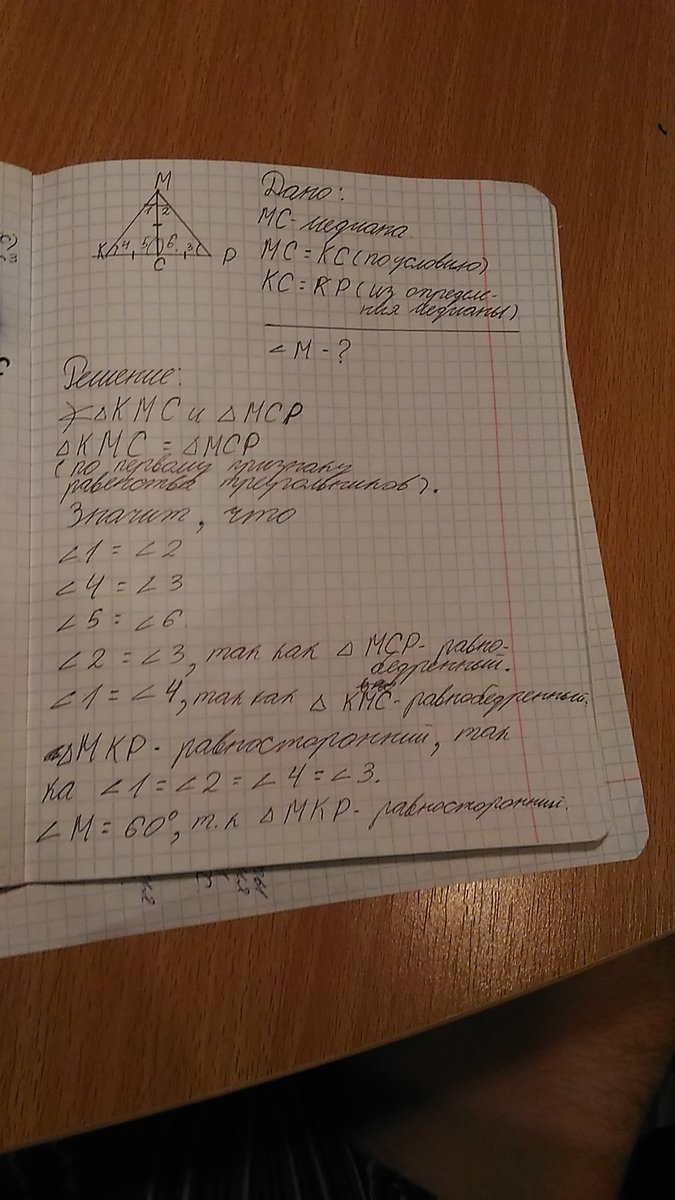 M
1 2
K 4 5 6 3 P
C
Дано:
MC - медиана.
MC = KC (по условию)
KC = KP (из определе-
ния медианы)
∠M - ?
Решение:
△KMC и △MCP
△KMC = △MCP
(по первому признаку
равенства треугольников).
Значит, что
∠1 = ∠2
∠4 = ∠3
∠5 = ∠6.
∠2 = ∠3, так как △ MCP - равно-
бедренный.
∠1 = ∠4, так как △ KMC - равнобедренный.
△MKP - равносторонний, так
ка ∠1 = ∠2 = ∠4 = ∠3.
∠M = 60°, т.к △MKP - равносторонний.